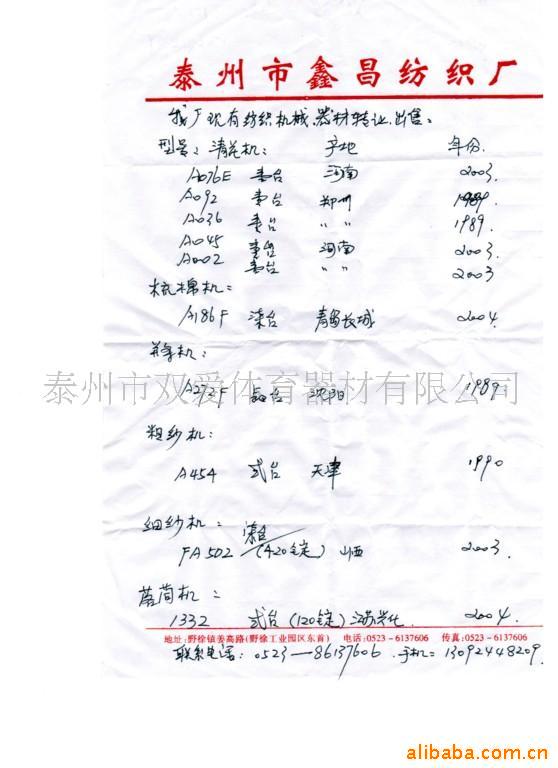 泰州市鑫昌纺织厂
我厂现有纺织机械、器材转让出售:
型号: 清花机: 产地 年份.
A076E 壹台 河南 2003.
A092 壹台 郑州 1989.
A036 壹台 〃 〃 1989.
A045 壹台 河南 2003.
A002 壹台 〃 〃 2003
梳棉机:
A186F 台 青岛长城 2004.
并条机:
泰州市双爱体育器材有限公司
A272F 台 沈阳 1989
粗纱机:
A454 弍台 天津 1990
细纱机:
FA502 台 (420锭) 山西 2003.
筒机:
1332 弍台 (120锭) 江苏兴化 2004.
地址:野徐镇姜高路(野徐工业园区东首) 电话:0523-6137606 传真:0523-6137606
联系电话: 0523—86137606. 手机: 13092448209.
alibaba.com.cn